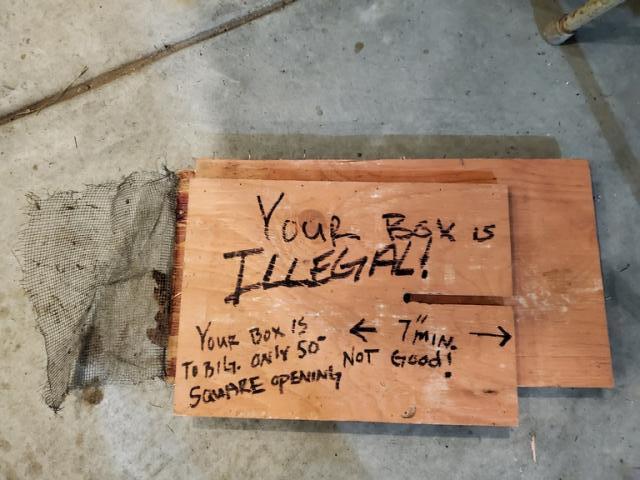 YOUR BOX IS
ILLEGAL!
YOUR BOX IS
TO BIG. ONLY 50"
SQUARE OPENING
← 7" MIN. →
NOT GOOD!